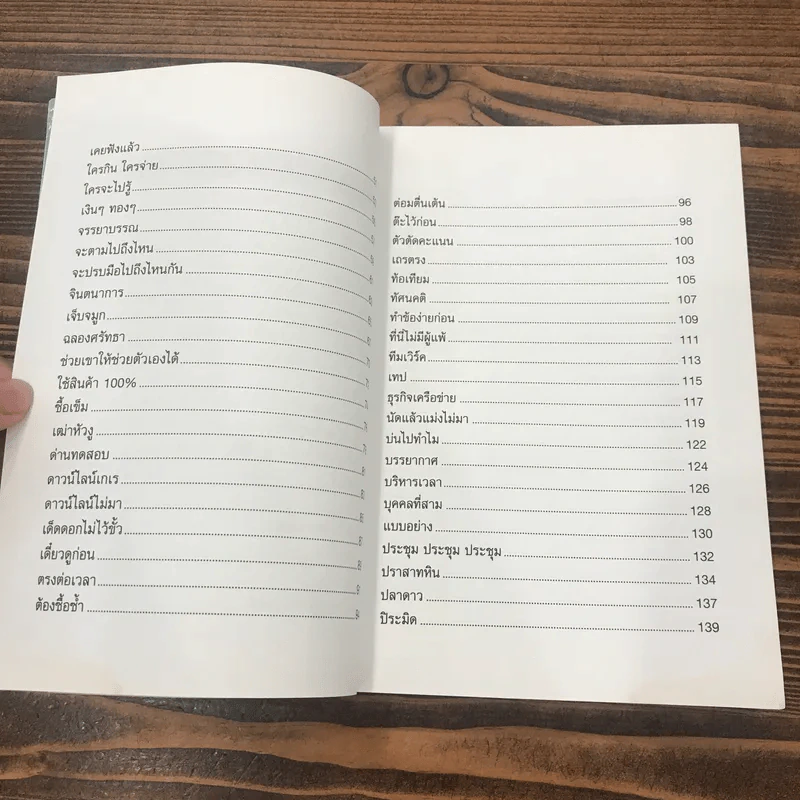 เคยฟังแล้ว
ใครกิน ใครจ่าย
ใครจะไปรู้
เงินๆ ทองๆ
จรรยาบรรณ
จะตามไปถึงไหน
จะปรบมือไปถึงไหนกัน
จินตนาการ
เจ็บจมูก
ฉลองศรัทธา
ช่วยเขาให้ช่วยตัวเองได้
ใช้สินค้า 100%
ซื้อเข็ม
เฒ่าหัวงู
ด่านทดสอบ
ดาวน์ไลน์เกเร
ดาวน์ไลน์ไม่มา
เด็ดดอกไม่ไว้ขั้ว
เดี๋ยวดูก่อน
ตรงต่อเวลา
ต้องซื้อซ้ำ
ต่อมตื่นเต้น 96
ต๊ะไว้ก่อน 98
ตัวตัดคะแนน 100
เถรตรง 103
ท้อเทียม 105
ทัศนคติ 107
ทำข้อง่ายก่อน 109
ที่นี่ไม่มีผู้แพ้ 111
ทีมเวิร์ค 113
เทป 115
ธุรกิจเครือข่าย 117
นัดแล้วแม่งไม่มา 119
บ่นไปทำไม 122
บรรยากาศ 124
บริหารเวลา 126
บุคคลที่สาม 128
แบบอย่าง 130
ประชุม ประชุม ประชุม 132
ปราสาทหิน 134
ปลาดาว 137
ปิระมิด 139